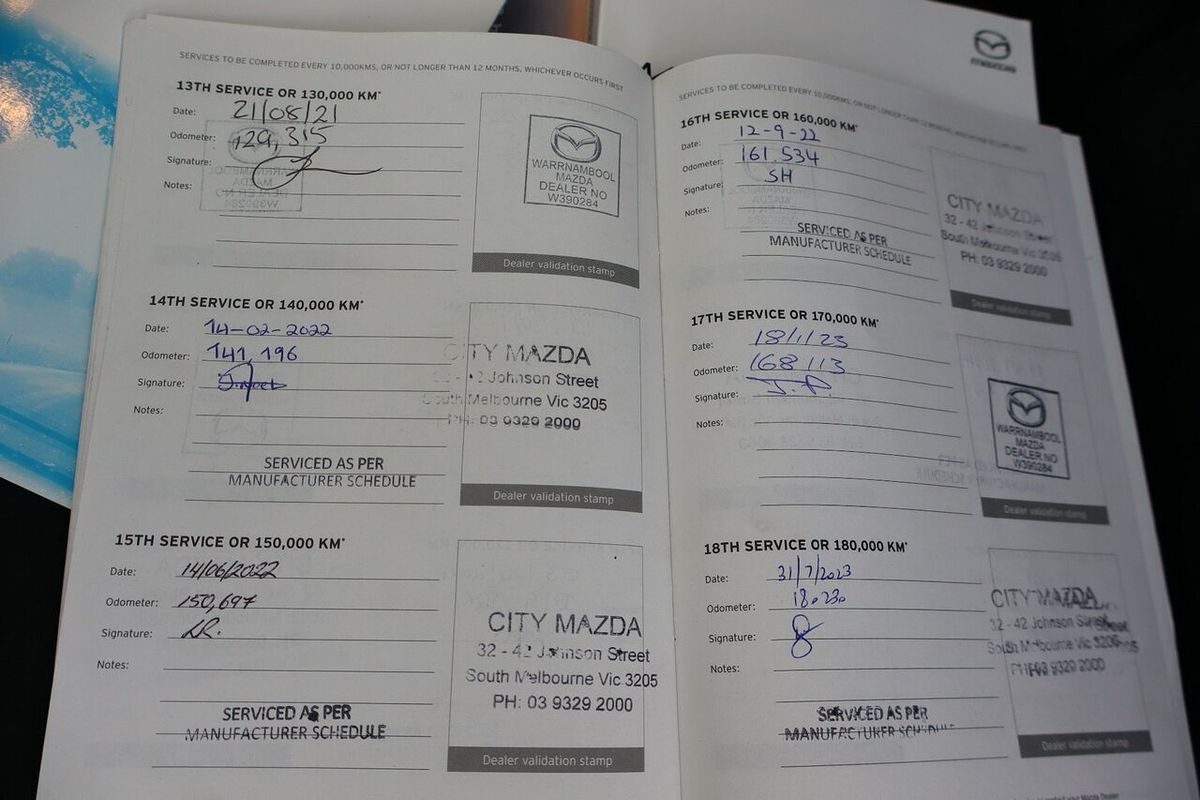 SERVICES TO BE COMPLETED EVERY 10,000KMS, OR NOT LONGER THAN 12 MONTHS, WHICHEVER OCCURS FIRST
13TH SERVICE OR 130,000 KM*
Date: 21/08/21
Odometer: 129,315
Signature:
Notes:
WARRNAMBOOL
MAZDA
DEALER NO
W390284
Dealer validation stamp
14TH SERVICE OR 140,000 KM*
Date: 14-02-2022
Odometer: 141,196
Signature:
Notes:
SERVICED AS PER
MANUFACTURER SCHEDULE
CITY MAZDA
32 - 42 Johnson Street
South Melbourne Vic 3205
PH: 03 9329 2000
Dealer validation stamp
15TH SERVICE OR 150,000 KM*
Date: 14/06/2022
Odometer: 150,697
Signature: LR.
Notes:
SERVICED AS PER
MANUFACTURER SCHEDULE
CITY MAZDA
32 - 42 Johnson Street
South Melbourne Vic 3205
PH: 03 9329 2000
Dealer validation stamp
mazda
SERVICES TO BE COMPLETED EVERY 10,000KMS, OR NOT LONGER THAN 12 MONTHS, WHICHEVER OCCURS FIRST
16TH SERVICE OR 160,000 KM*
Date: 12-9-22
Odometer: 161.534
Signature: SH
Notes:
SERVICED AS PER
MANUFACTURER SCHEDULE
CITY MAZDA
32 - 42 Johnson Street
South Melbourne Vic 3205
PH: 03 9329 2000
Dealer validation stamp
17TH SERVICE OR 170,000 KM*
Date: 18/1/23
Odometer: 168113
Signature: J.P.
Notes:
WARRNAMBOOL
MAZDA
DEALER NO
W390284
Dealer validation stamp
18TH SERVICE OR 180,000 KM*
Date: 31/7/2023
Odometer: 180230
Signature:
Notes:
SERVICED AS PER
MANUFACTURER SCHEDULE
CITY MAZDA
32 - 42 Johnson Street
South Melbourne Vic 3205
PH: 03 9329 2000
Dealer validation stamp